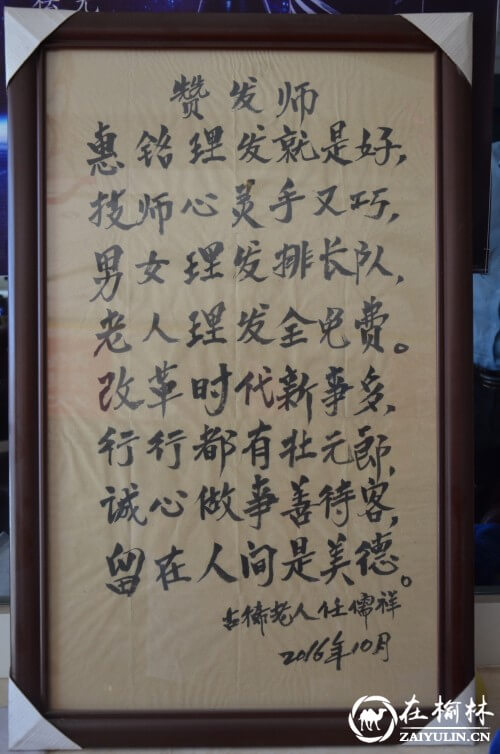 赞发师
惠铭理发就是好,
技师心灵手又巧,
男女理发排长队,
老人理发全免费。
改革时代新事多,
行行都有壮元郎,
诚心做事善待客,
留在人间是美德。
老人任儒祥
2016年10月
在榆林
ZAIYULIN.CN